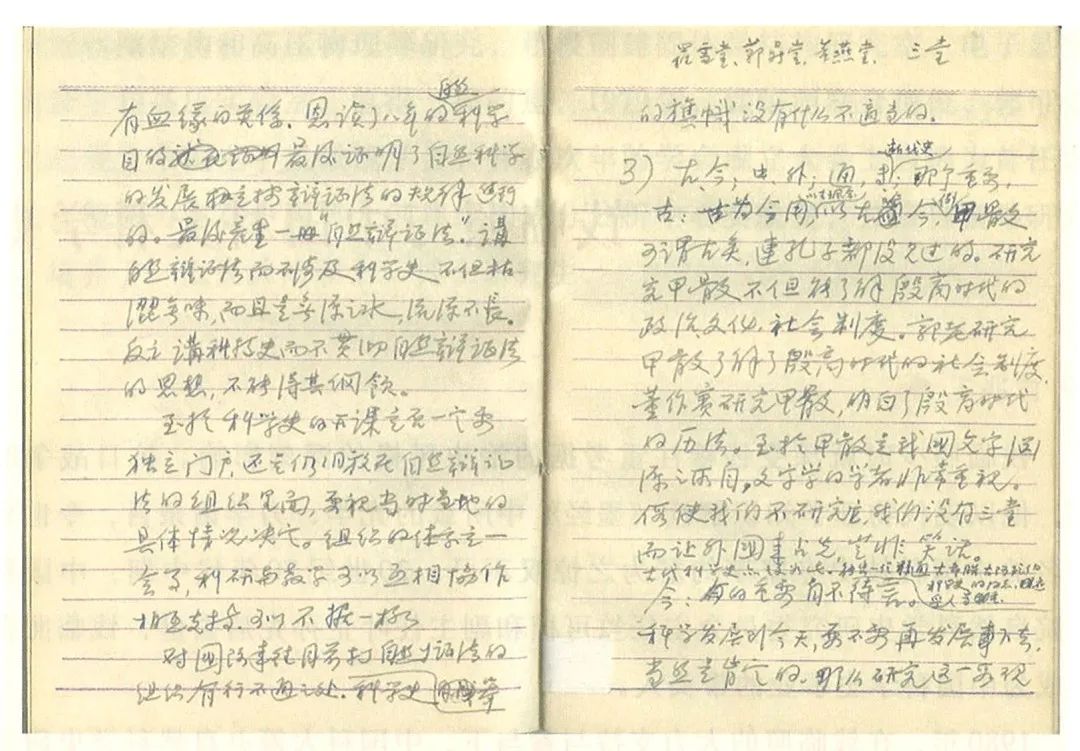 有血缘的关系。恩读了八年的自然科学
目的 最后证明了自然科学
的发展 按辩证法的规律进行
的。最后产生一册"自然辩证法"。讲
自然辩证法而不 及科学史 不但枯
涩无味,而且是无源之水,流源不长。
反之讲科技史而不贯彻自然辩证法
的思想,不能得其纲领。
至于科学史的开课
独立门户还是仍旧放在自然辩证
法的组织里面,要视当时当地的
具体情况决定。组织的体系
科研与教学可以互相协作
相互支持,可以不拘一格
对国际来往目前打自然辩证法的
组织有行不通之处。科学史
罗雪堂、郭鼎堂、董彦堂、三堂
的旗帜没有什么不适当的。
3)古、今;中、外; 断代史
古:古为今用 以古 今,甲骨
可谓古矣,连孔子都没见过的。研究
究甲骨不但能了解殷商时代的
政治、文化、社会制度。郭老研究
甲骨了解了殷商时代的社会制度,
董作宾研究甲骨,明白了殷商时代
的历法。至于甲骨是我国文字渊
源之所自,文字学的学者非常重视。
假使我们不研究它,我们没有三堂
而让外国专占先,岂非笑话。
古代科学史亦复如此。
今: 的重要自不待言。
科学发展到今天,要不要再发展
当然是肯定的。那么研究这一客观